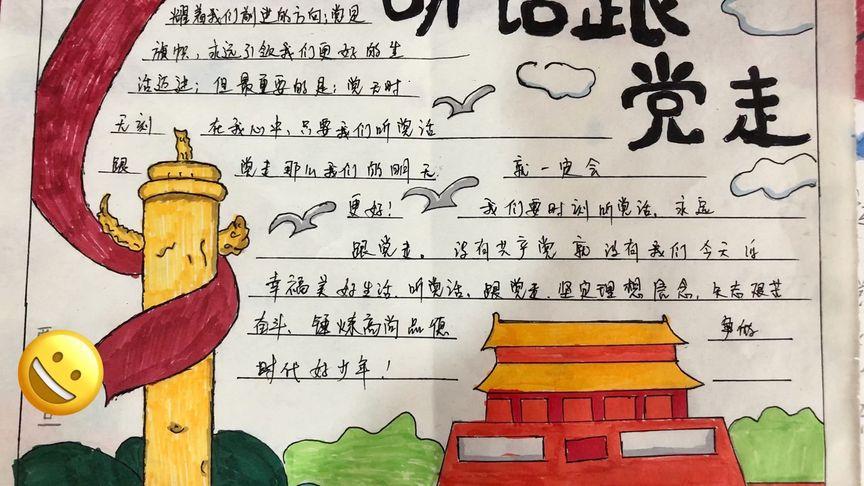 听话跟
党走
耀着我们前进的方向；党是
旗帜，永远引领我们更好的生
活迈进；但最重要的是：党无时
无刻 在我心中，只要我们听党话
跟 党走那么我们的明天 就一定会
更好！ 我们要时刻听党话，永远
跟党走。没有共产党就没有我们今天的
幸福美好生活，听党话，跟党走，坚定理想信念，矢志艰苦
奋斗、锤炼高尚品德 争做
时代好少年！